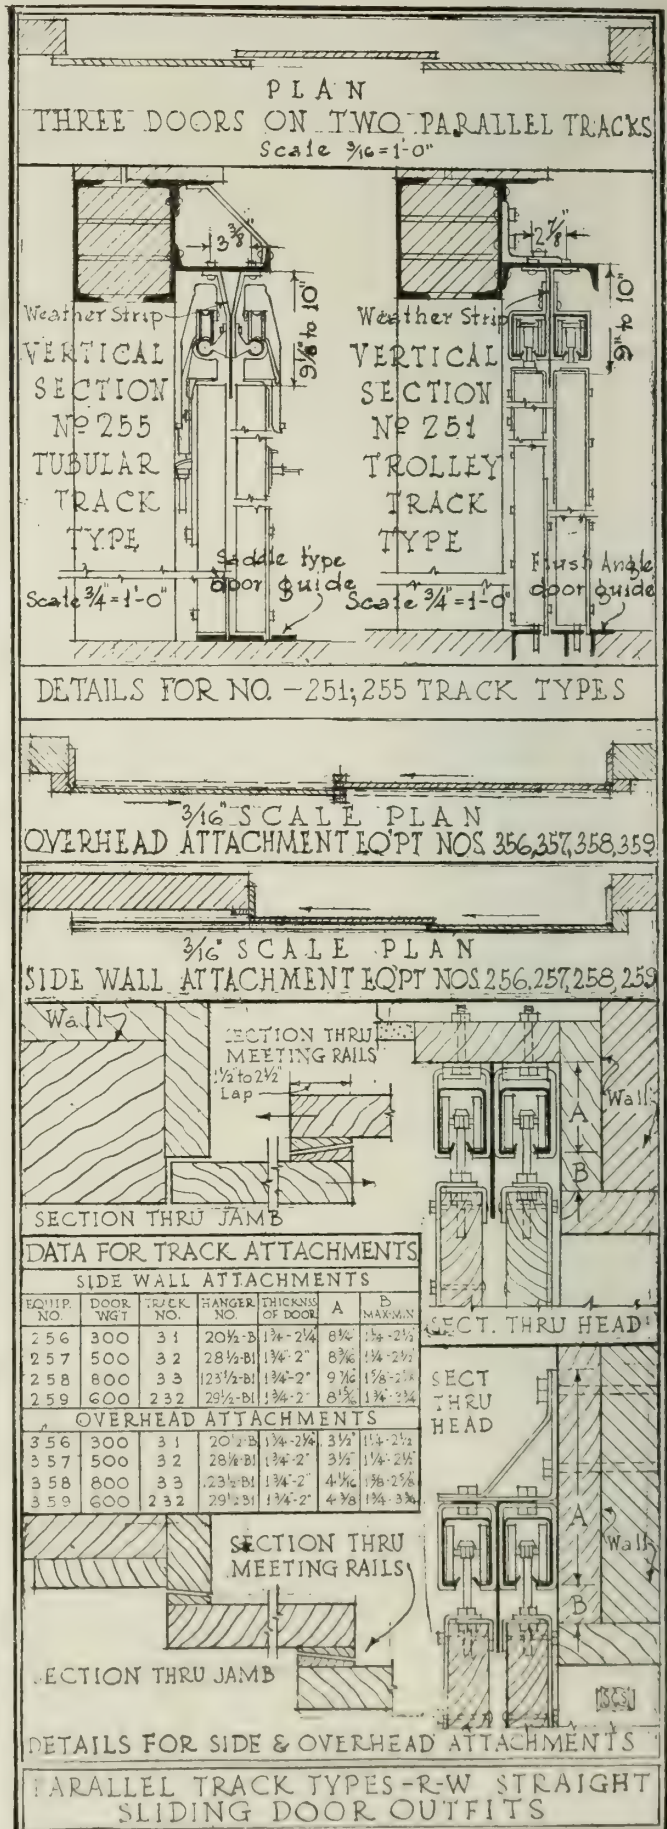 PLAN
THREE DOORS ON TWO PARALLEL TRACKS
Scale 3/16 = 1'-0"
3 3/8"
9 1/8" to 10"
Weather Strip
VERTICAL
SECTION
Nº 255
TUBULAR
TRACK
TYPE
Saddle type
door guide
Scale 3/4" = 1'-0"
2 7/8"
6" to 10"
Weather Strip
VERTICAL
SECTION
Nº 251
TROLLEY
TRACK
TYPE
Flush Angle
door guide
Scale 3/4" = 1'-0"
DETAILS FOR NO. -251; 255 TRACK TYPES
3/16" SCALE PLAN
OVERHEAD ATTACHMENT EQ'PT NOS. 356, 357, 358, 359
3/16" SCALE PLAN
SIDE WALL ATTACHMENT EQ'PT NOS. 256, 257, 258, 259
Wall
SECTION THRU
MEETING RAILS
1 1/2" to 2 1/2"
Lap
SECTION THRU JAMB
A
B
Wall
SECT. THRU HEAD
DATA FOR TRACK ATTACHMENTS
SIDE WALL ATTACHMENTS
EQUIP. NO. DOOR WGT TRACK NO. HANGER NO. THICKNSS OF DOOR A B MAX-MIN
256 300 31 20 1/2-B 1 3/4-2 1/4 8 1/4"
257 500 32 28 1/2-B1 1 3/4-2" 8 3/16 1 1/4-2 1/2"
258 800 33 123 1/2-B1 1 3/4-2" 9 1/16 1 5/8
259 600 232 29 1/2-B1 1 3/4-2" 8 15/16 1 3/4-3 3/4
OVERHEAD ATTACHMENTS
356 300 31 20 1/2-B 1 3/4-2 1/4 3 1/2" 1 1/4-2 1/2
357 500 32 28 1/2-B1 1 3/4-2" 3 1/2" 1 1/4-2 1/2"
358 800 33 23 1/2-B1 1 3/4-2" 4 1/16 1 3/8-2 5/8
359 600 232 29 1/2-B1 1 3/4-2" 4 3/8 1 3/4-3 3/4
SECT
THRU
HEAD
A
B
Wall
SECTION THRU
MEETING RAILS
SECTION THRU JAMB
DETAILS FOR SIDE & OVERHEAD ATTACHMENTS
PARALLEL TRACK TYPES-R-W STRAIGHT
SLIDING DOOR OUTFITS